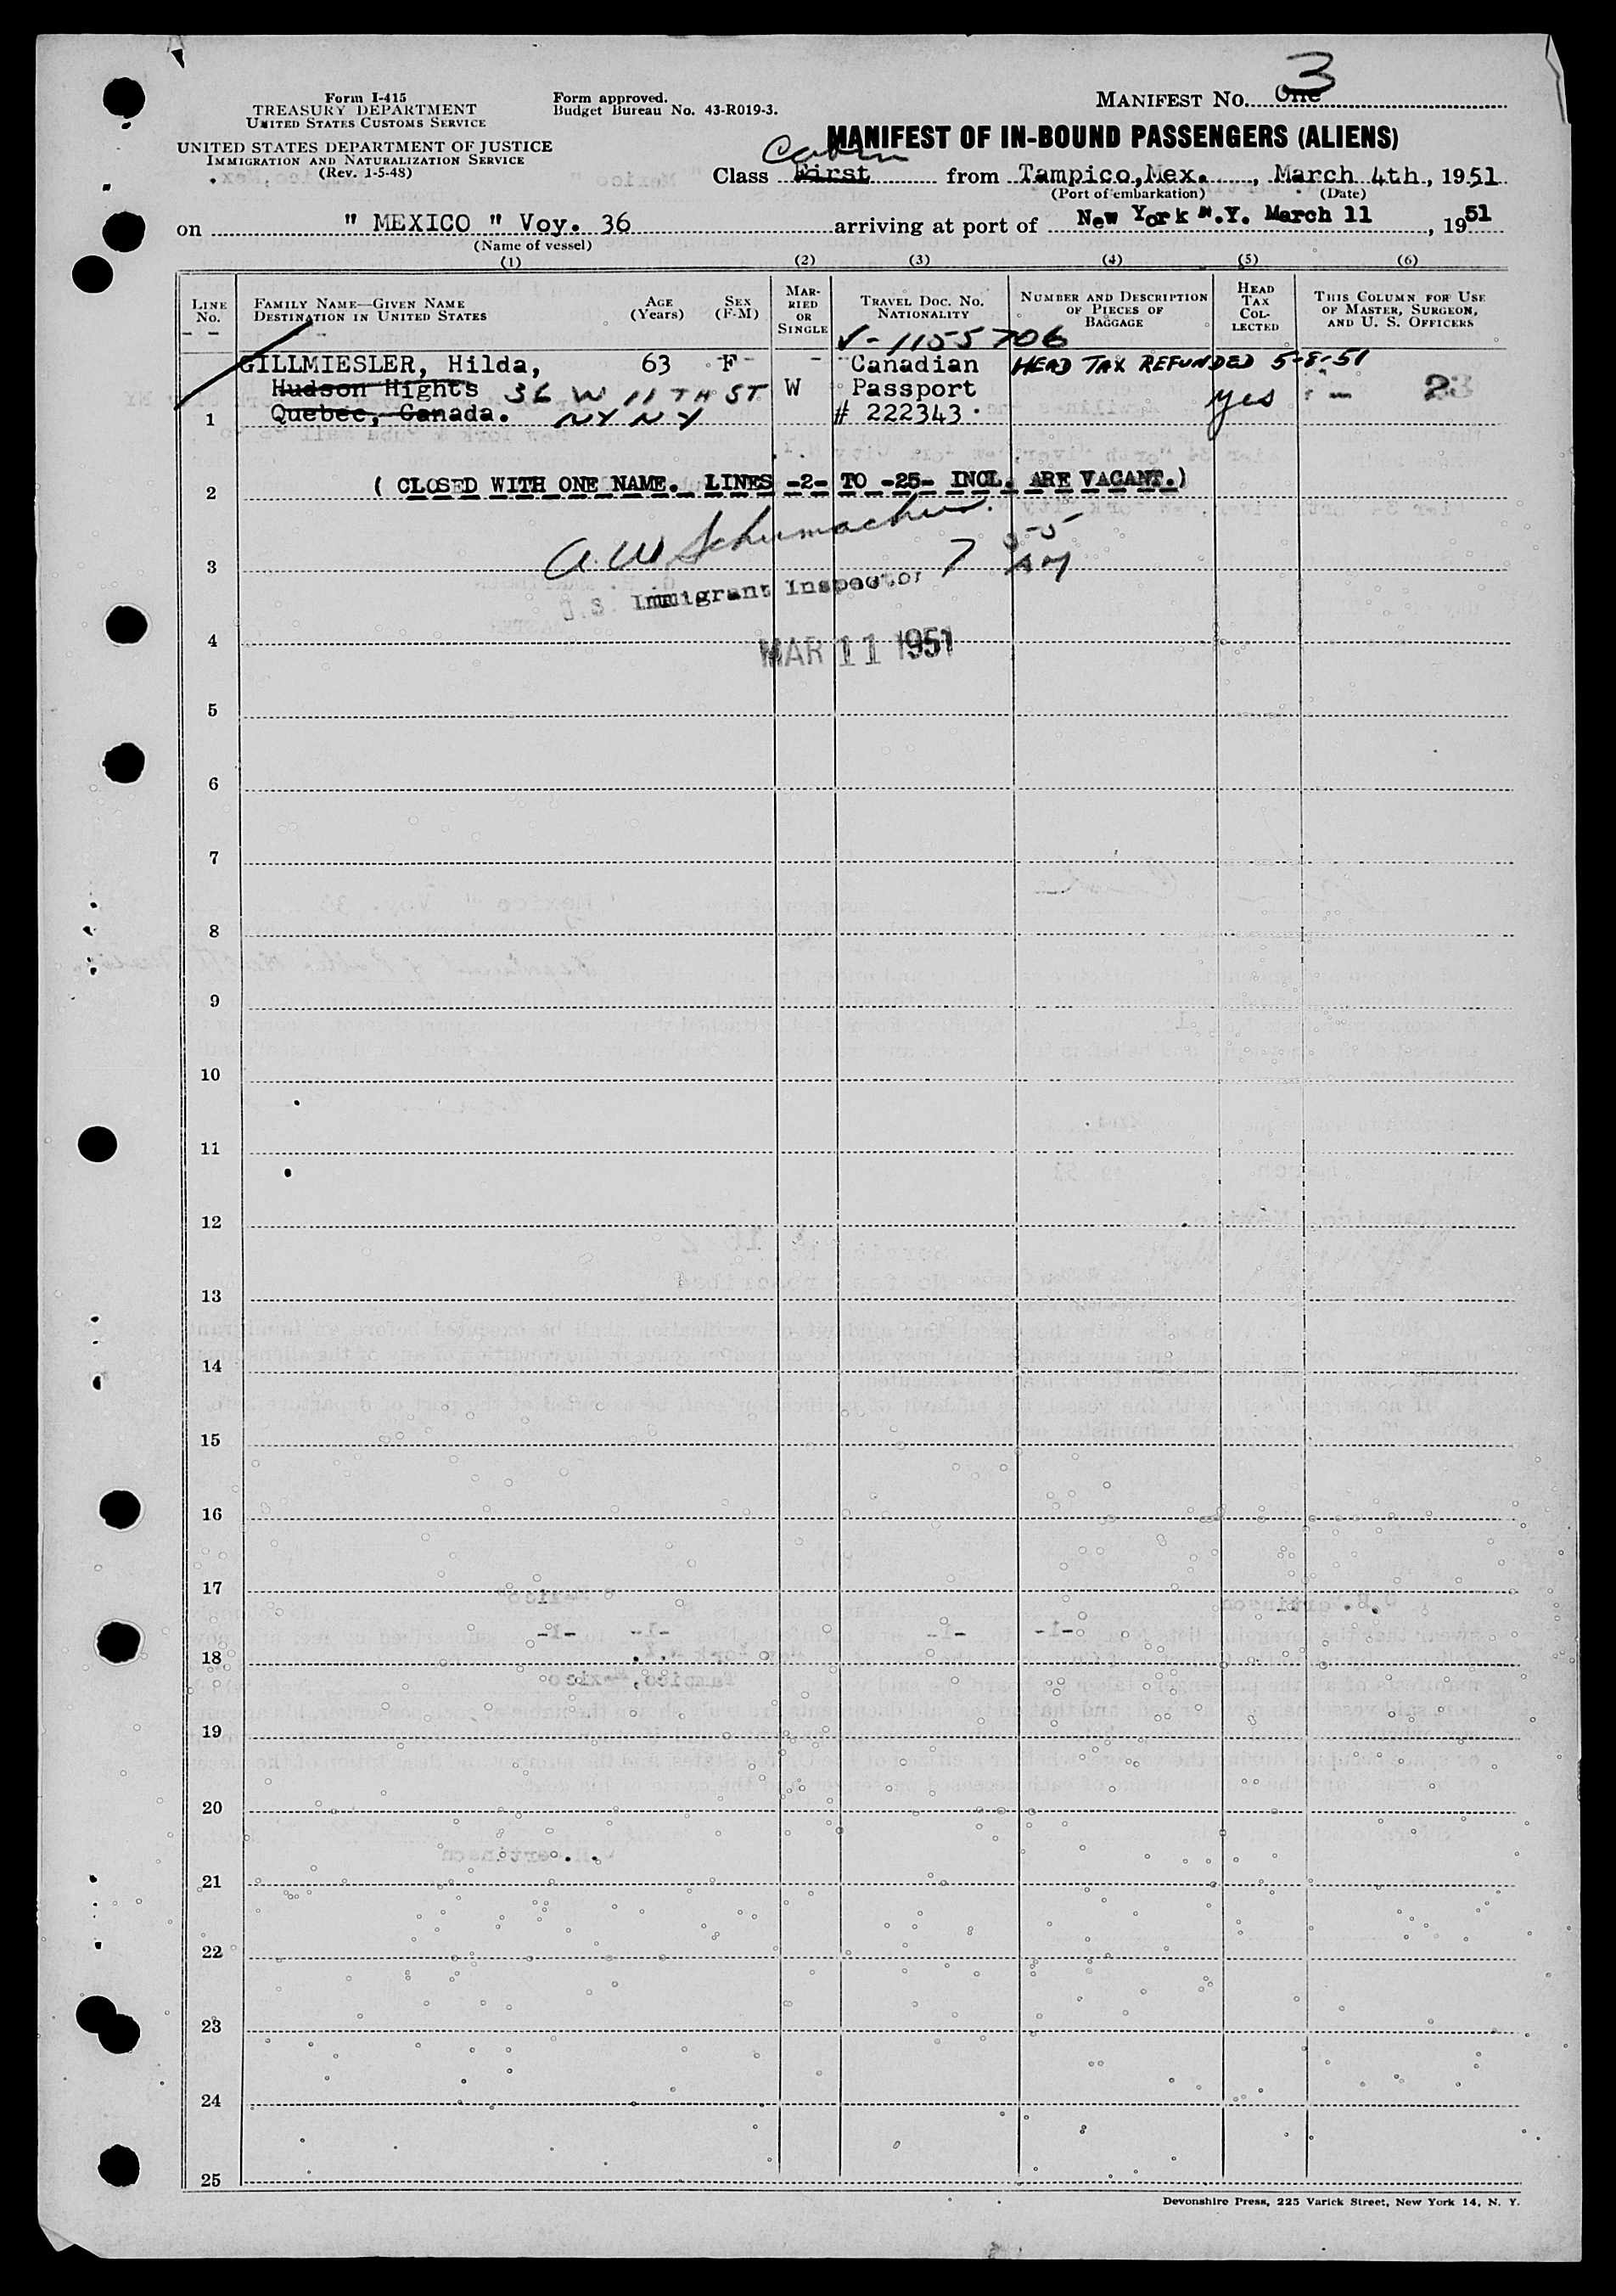 3
Form I-415
TREASURY DEPARTMENT
UNITED STATES CUSTOMS SERVICE
UNITED STATES DEPARTMENT OF JUSTICE
IMMIGRATION AND NATURALIZATION SERVICE
(Rev. 1-5-48)
Form approved.
Budget Bureau No. 43-R019-3.
MANIFEST NO. One
MANIFEST OF IN-BOUND PASSENGERS (ALIENS)
Cabin
Class First from Tampico,Mex. , March 4th, 1951
(Port of embarkation) (Date)
on " MEXICO " Voy. 36 arriving at port of New York N.Y. March 11 , 1951
(Name of vessel)
(1) (2) (3) (4) (5) (6)
LINE NO.
FAMILY NAME—GIVEN NAME
DESTINATION IN UNITED STATES
AGE (Years)
SEX (F-M)
MARRIED OR SINGLE
TRAVEL DOC. NO.
NATIONALITY
NUMBER AND DESCRIPTION OF PIECES OF BAGGAGE
HEAD TAX COLLECTED
THIS COLUMN FOR USE OF MASTER, SURGEON, AND U. S. OFFICERS
V-1155706
GILLMIESLER, Hilda, 63 F - Canadian HEAD TAX REFUNDED 5-8-51
Hudson Hights 36 W 11TH ST W Passport yes
1 Quebec, Canada. NY NY # 222343
2 ( CLOSED WITH ONE NAME. LINES -2- TO -25- INCL. ARE VACANT.)
A. W. Schumacher
3
U.S. Immigrant Inspector
4 MAR 11 1951
5
6
7
8
9
10
11
12
13
14
15
16
17
18
19
20
21
22
23
24
25
Devonshire Press, 225 Varick Street, New York 14, N. Y.